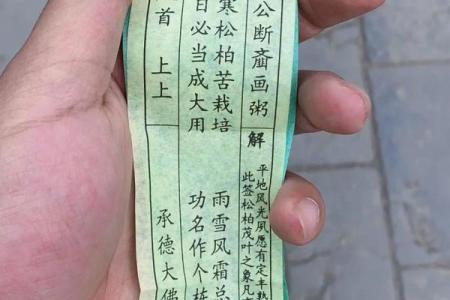 公断齑画粥
解
平地风光夙愿有定丰熟
此签松柏茂叶之象凡事
寒松柏苦栽培
雨雪风霜总
日必当成大用
功名作个栋
首 上上
承德大佛